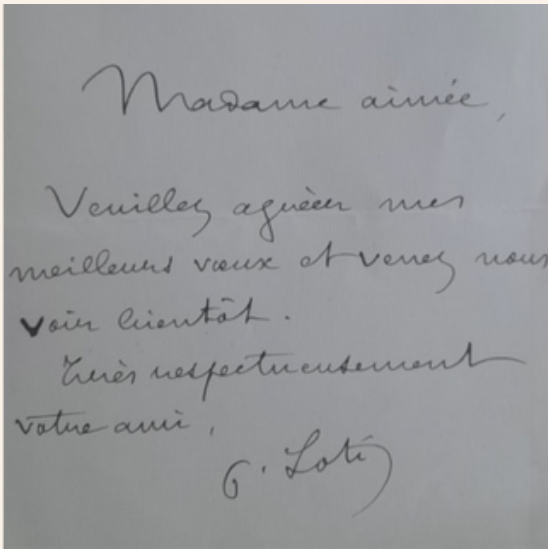 Madame aimée,
Veuillez agréer mes
meilleurs vœux et venez nous
voir bientôt.
Très respectueusement
votre ami,
P. Loti